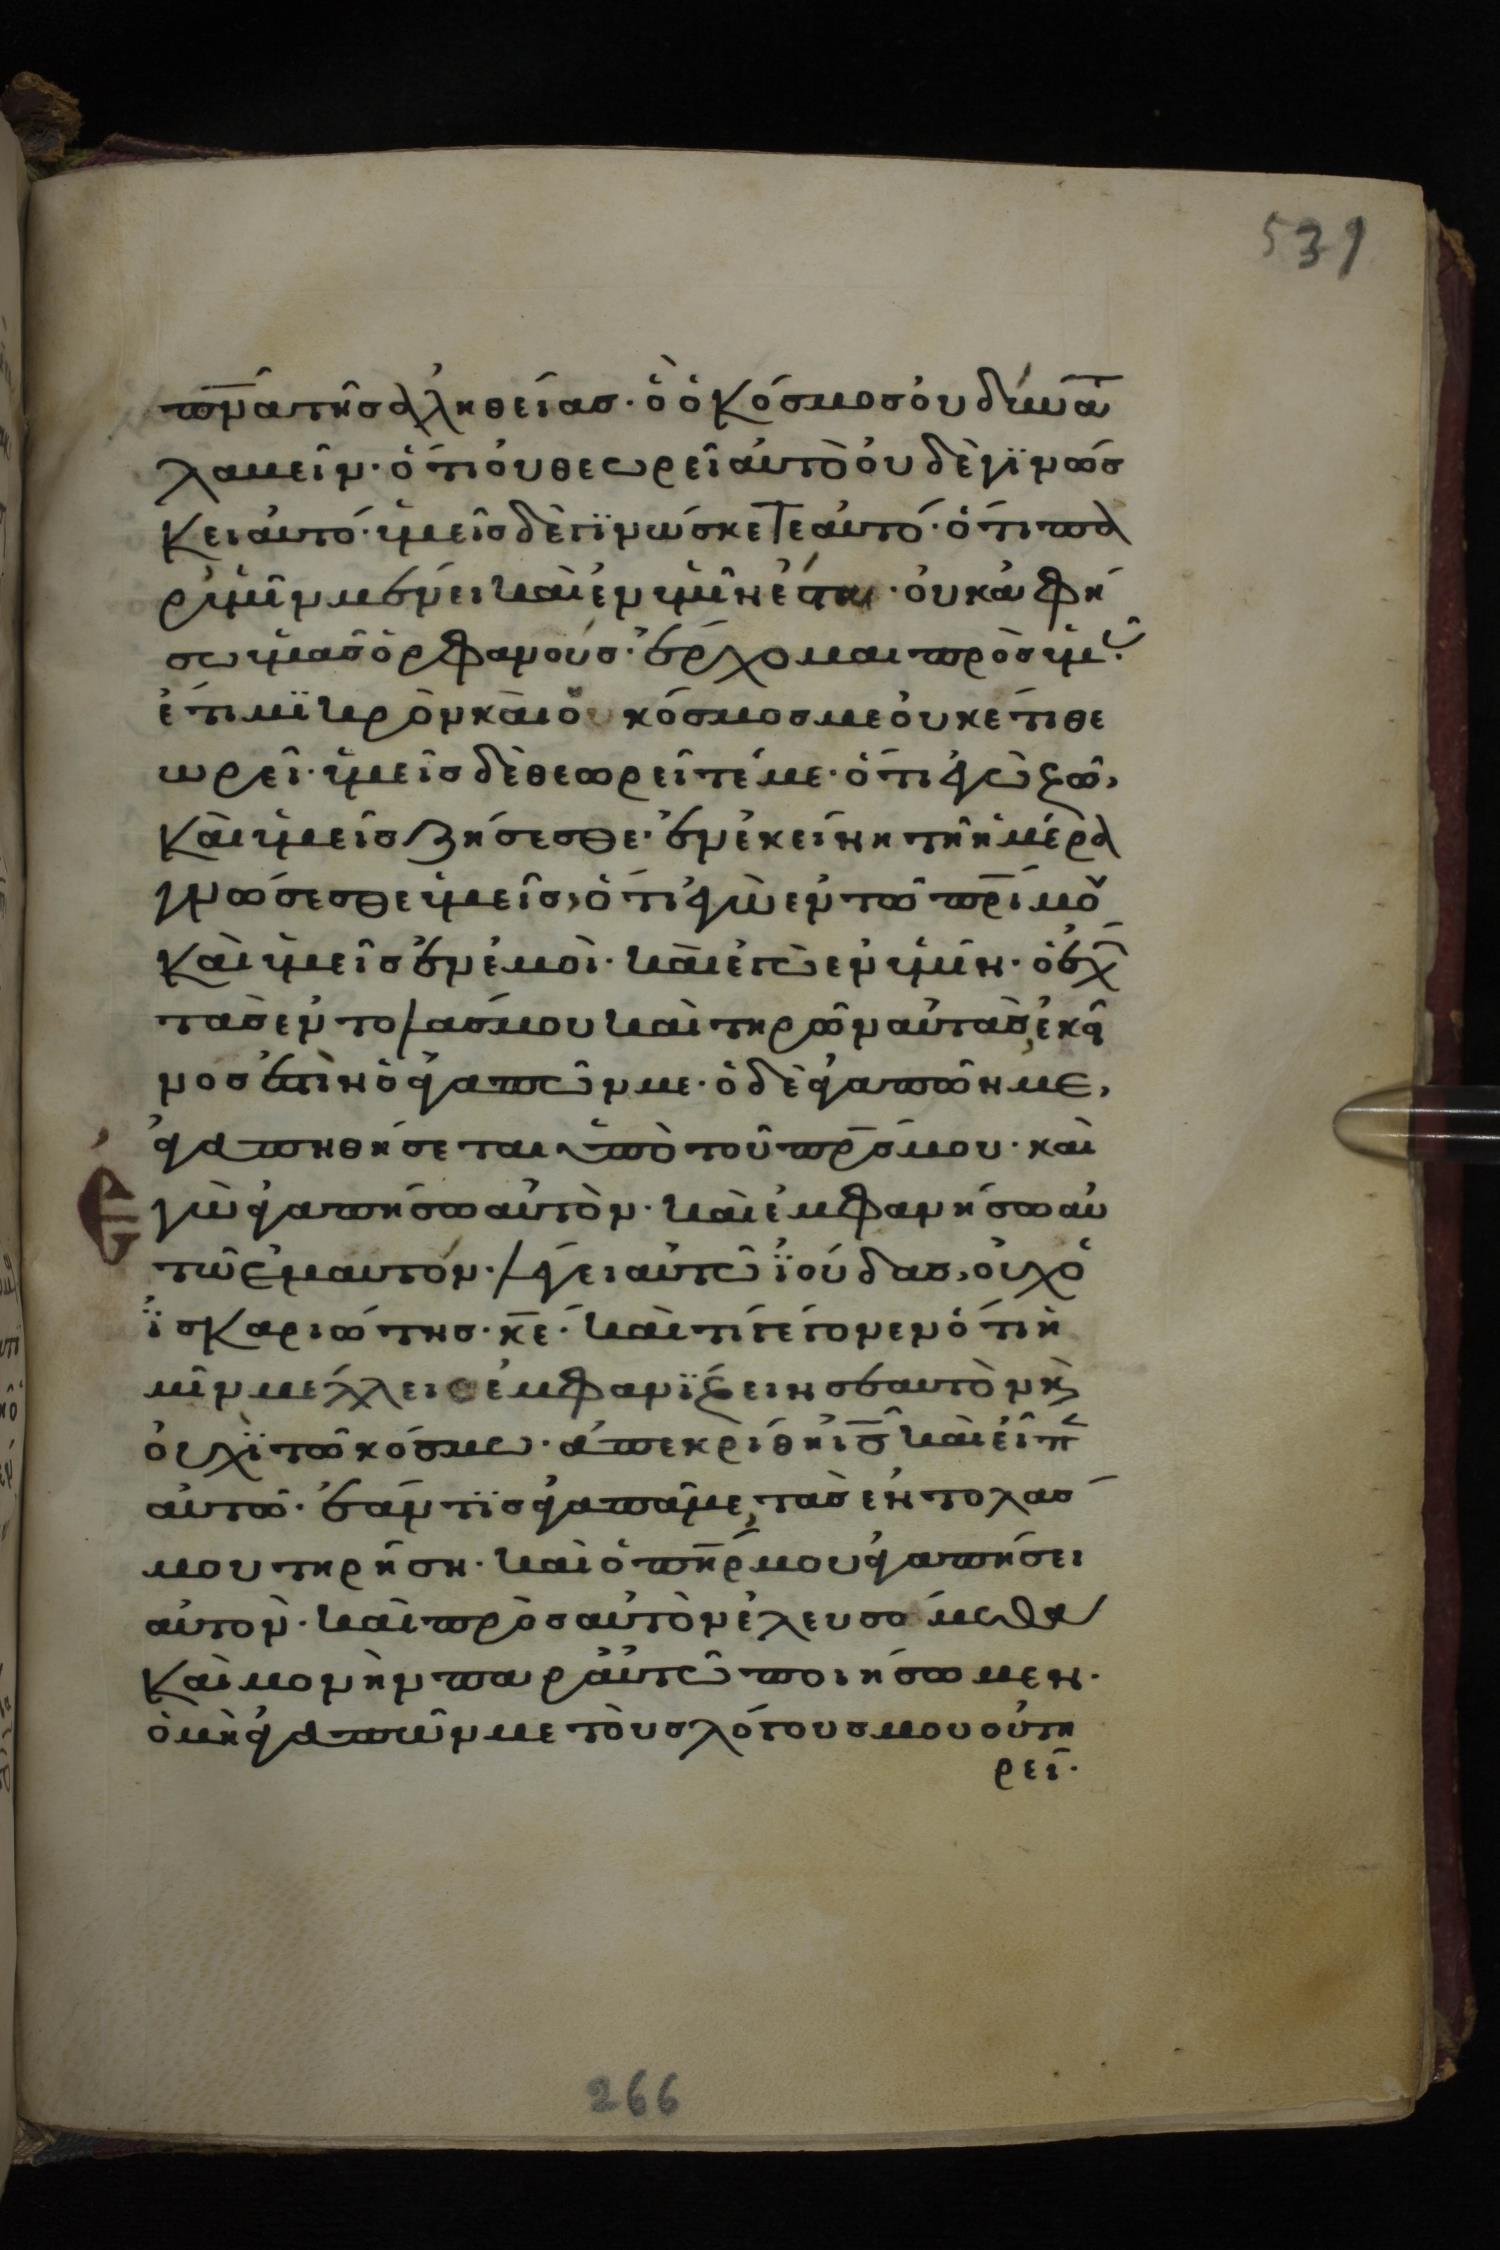 531
πν̅ατῆσἀληθείασ· ὃ ὁ κόσμοσ οὐ δύνατ
λαμεῖν· ὅτι οὐ θεωρεῖ αὐτὸ οὐδὲ γϊνώσ
κει αὐτό· ὑμεῖσ δὲ γϊνώσκετε αὐτό· ὅτι πα
ρ' ὑμῖν μένει καὶ ἐν ὑμῖν ἔσται· οὐκ ἀφή
σω ὑμᾶσ ὀρφανούσ· ἔρχομαι πρὸσ ὑμ·
ἔτι μϊκρὸν καὶ ὁ κόσμοσ με οὐκέτι θε
ωρεῖ· ὑμεῖσ δὲ θεωρεῖτέ με· ὅτι ἐγὼ ζῶ,
καὶ ὑμεῖσ ζήσεσθε· ἐν ἐκείνη τῆ ἡμέρα
γνώσεσθε ὑμεῖσ, ὅτι ἐγὼ ἐν τῶ πρ̅ι μου
καὶ ὑμεῖσ ἐν ἐμοὶ· καὶ ἐγὼ ἐν ὑμῖν· ὁ ἔχ
τὰσ ἐντολάσ μου καὶ τηρῶν αὐτὰσ, ἐκεῖ
νοσ ἐστὶν ὁ ἀγαπῶν με· ὁ δὲ ἀγαπῶν με,
ἀγαπηθήσεται ὑπὸ τοῦ πρ̅σ μου· καὶ
Ἐγὼ ἀγαπήσω αὐτὸν· καὶ ἐμφανήσω αὐ
τῶ ἐμαυτόν· λέγει αὐτῶ ϊούδασ, οὐχ ὁ
ϊσκαριώτησ· κ̅ε· καὶ τί γέγονεν ὅτι ἡ
μῖν μέλλεισ ἐμφανϊζειν σεαυτὸν κ̀
οὐχϊ τῶ κόσμω· ἀπεκρίθη ι̅σ καὶ εἶπ
αὐτῶ· ἐάν τϊσ ἀγαπᾶ με, τὰσ ἐντολάσ
μου τηρήση· καὶ ὁ π̅ηρ μου ἀγαπήσει
αὐτὸν· καὶ πρὸσ αὐτὸν ἐλευσόμεθα
καὶ μονὴν παρ' αὐτῶ ποιήσωμεν·
ὁ μὴ ἀγαπῶν με τὸυσ λόγουσ μου οὐ τη
ρεῖ·
266